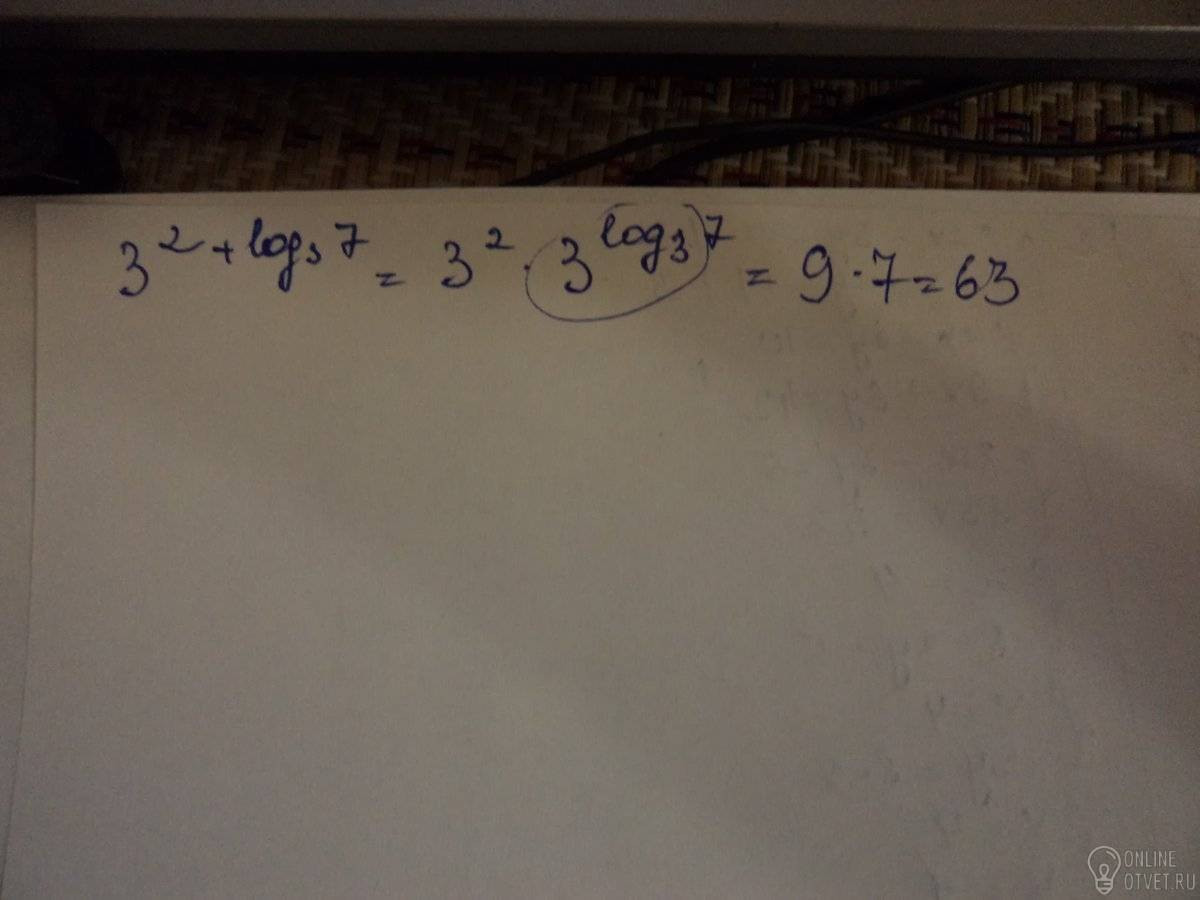 3^{2 + log_3 7} = 3^2 · 3^{log_3 7} = 9 · 7 = 63
ONLINE
OTVET.RU